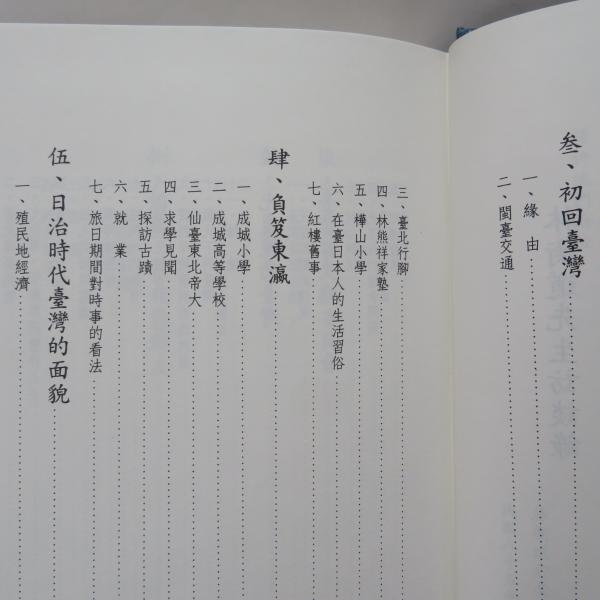 叁、初回臺灣
一、緣　由
二、閩臺交通
三、臺北行腳
四、林熊祥家塾
五、樺山小學
六、在臺日本人的生活習俗
七、紅樓舊事
肆、負笈東瀛
一、成城小學
二、成城高等學校
三、仙臺東北帝大
四、求學見聞
五、探訪古蹟
六、就　業
七、旅日期間對時事的看法
伍、日治時代臺灣的面貌
一、殖民地經濟